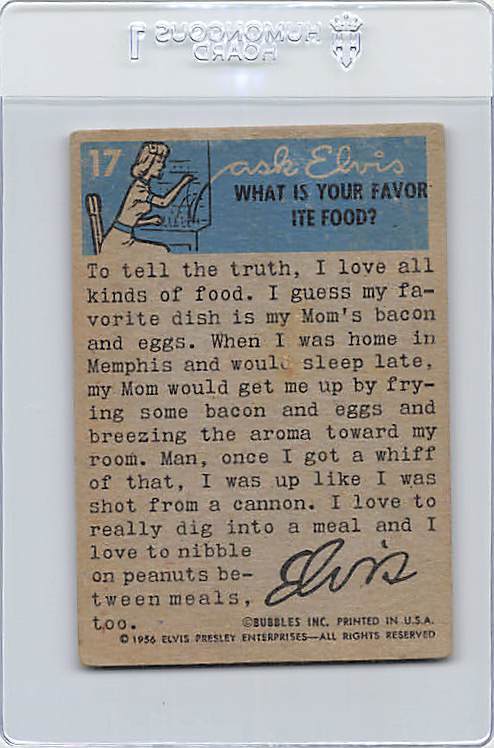 HUMONGOUS
HOARD
17
ask Elvis
WHAT IS YOUR FAVOR
ITE FOOD?
To tell the truth, I love all
kinds of food. I guess my fa-
vorite dish is my Mom's bacon
and eggs. When I was home in
Memphis and would sleep late,
my Mom would get me up by fry-
ing some bacon and eggs and
breezing the aroma toward my
room. Man, once I got a whiff
of that, I was up like I was
shot from a cannon. I love to
really dig into a meal and I
love to nibble
on peanuts be-
tween meals,
too.
Elvis
©BUBBLES INC. PRINTED IN U.S.A.
© 1956 ELVIS PRESLEY ENTERPRISES—ALL RIGHTS RESERVED